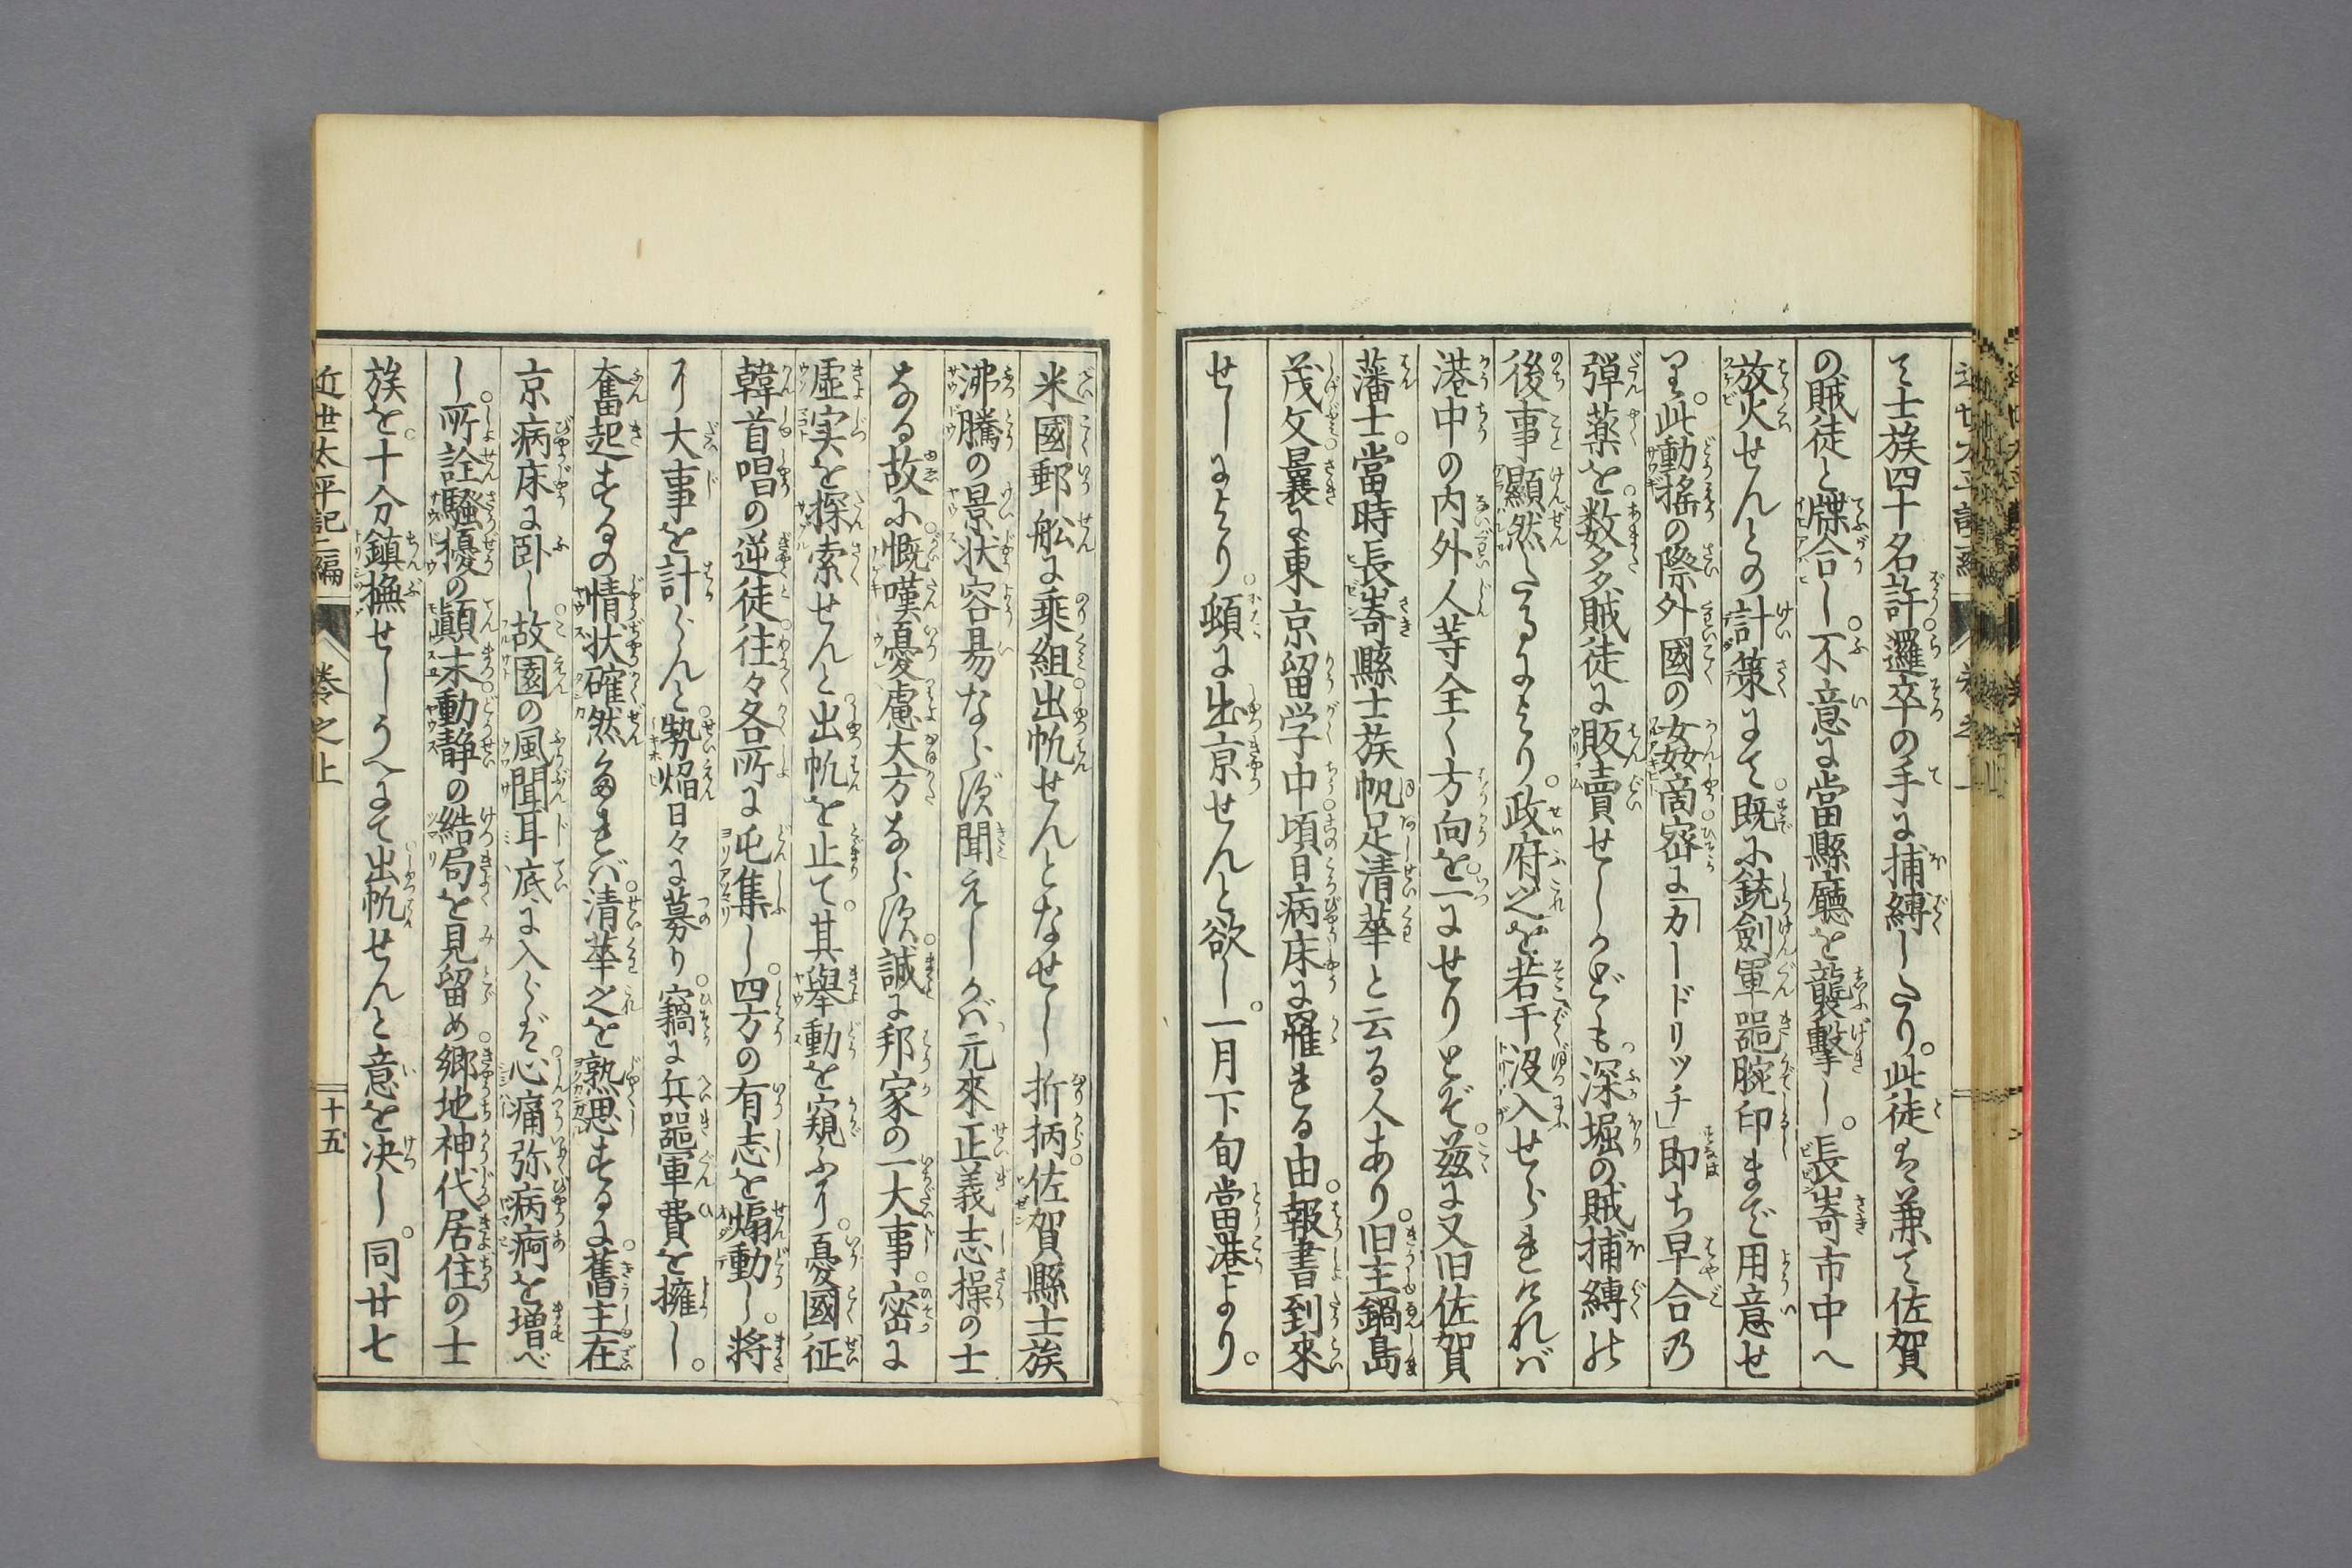 て士族四十名許邏卒の手に捕縛したり。此徒は兼て佐賀
の賊徒と牒合し。不意に當縣廳を襲撃し。長崎市中へ
放火せんとの計策にて。既に銃劍軍器腕印まで用意せ
り。此動搖の際外國の姦商密に「カードリッチ」即ち早合乃
弾薬を。数多賊徒に販賣せしかども。深堀の賊捕縛の
後事顯然たるにより。政府之を若干没入せられければ
港中の内外人等全く方向を一にせりとぞ。茲に又旧佐賀
藩士。當時長崎縣士族帆足清華と云る人あり。旧主鍋島
茂文曩に東京留学中。頃日病床に罹まる由。報書到来
せしにより。頓に出京せんと欲し。一月下旬當港より。
米國郵舩に乗組。出帆せんとなせし折柄。佐賀縣士族
沸騰の景状容易ならず聞えしかば。元來正義志操の士
なる故に。慨嘆憂慮大方ならず。誠に邦家の一大事。密に
虚実を探索せんと。出帆を止て。其擧動を窺ふり。憂國征
韓首唱の逆徒。往々各所に屯集し。四方の有志を煽動し。将
り大事を計らんと。勢焰日々に募り。竊に兵器軍費を擁し。
奮起するの情状確然たれば。清華之を熟思するに。舊主在
京病床に卧し。故園の風聞耳底に入らば。心痛弥病痾を増べ
し。所詮騒擾の顛末。動静の結局を見留め。郷地神代居住の士
族を。十分鎮撫せしうへにて。出帆せんと意を决し。同廿七
近世太平記二編 巻之上 十五